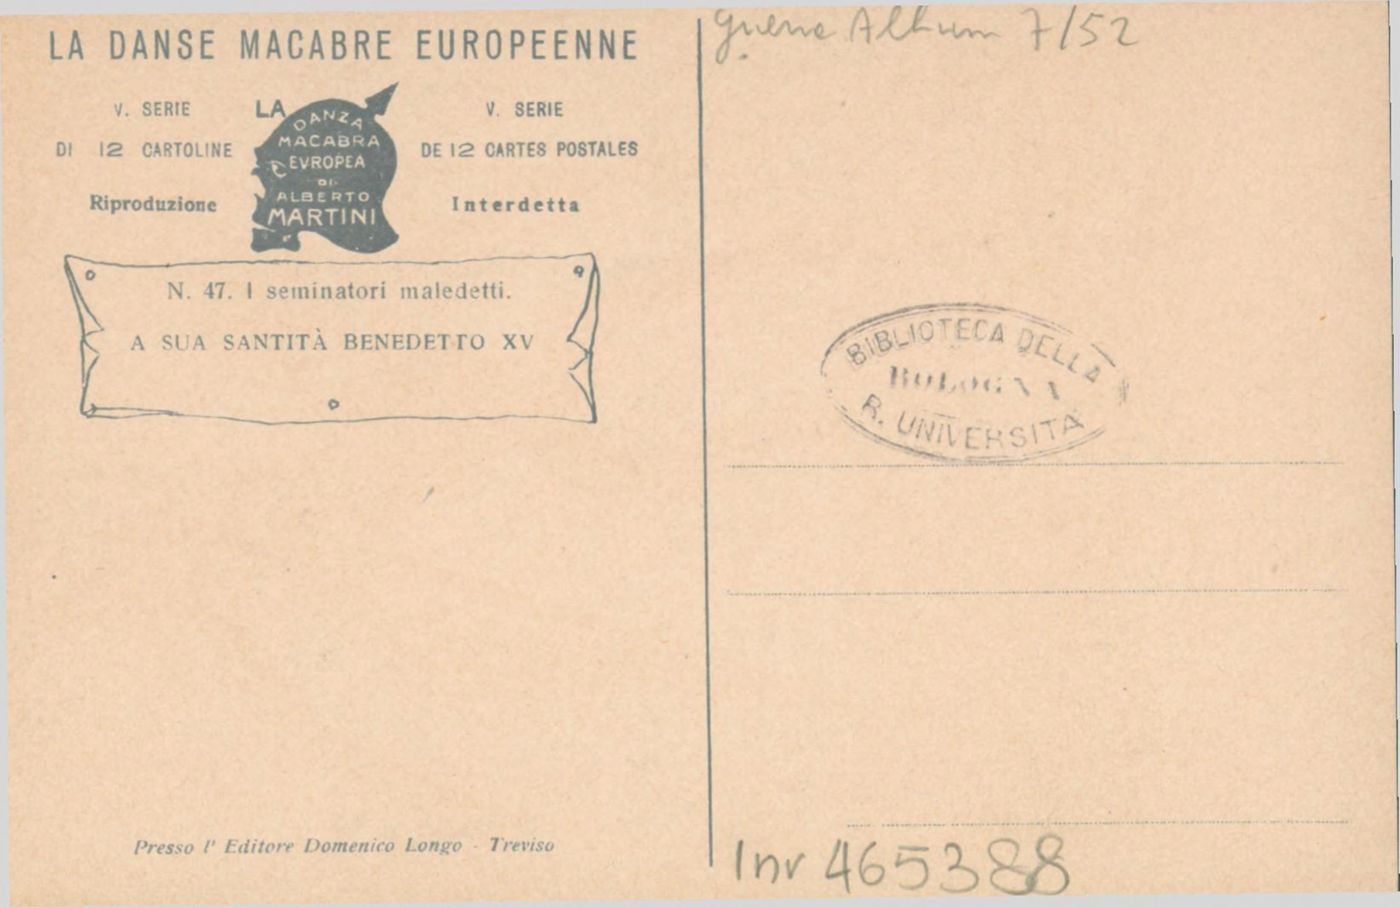 LA DANSE MACABRE EUROPEENNE
V. SERIE
DI 12 CARTOLINE
Riproduzione
LA
DANZA
MACABRA
EVROPEA
DI
ALBERTO
MARTINI
V. SERIE
DE 12 CARTES POSTALES
Interdetta
N. 47. I seminatori maledetti.
A SUA SANTITÀ BENEDETTO XV
Presso l' Editore Domenico Longo - Treviso
Guerra Album 7/52
BIBLIOTECA DELLA
BOLOGNA
R. UNIVERSITÀ
Inv 465388